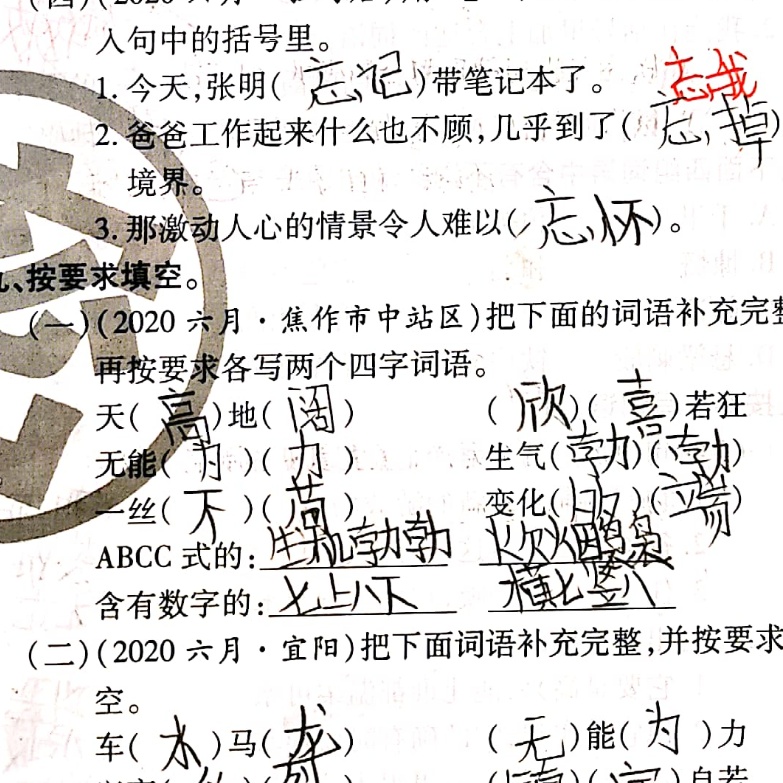 入句中的括号里。
1. 今天,张明(忘记)带笔记本了。 忘我
2. 爸爸工作起来什么也不顾,几乎到了(忘掉)
境界。
3. 那激动人心的情景令人难以(忘怀)。
九、按要求填空。
(一)(2020 六月·焦作市中站区)把下面的词语补充完整
再按要求各写两个四字词语。
天(高)地(阔) (欣)(喜)若狂
无能(为)(力) 生气(勃)(勃)
一丝(不)(苟) 变化()(端)
ABCC 式的:生机勃勃
含有数字的:七上八下 横七竖八
(二)(2020 六月·宜阳)把下面词语补充完整,并按要求
空。
车(水)马(龙) (无)能(为)力
自若